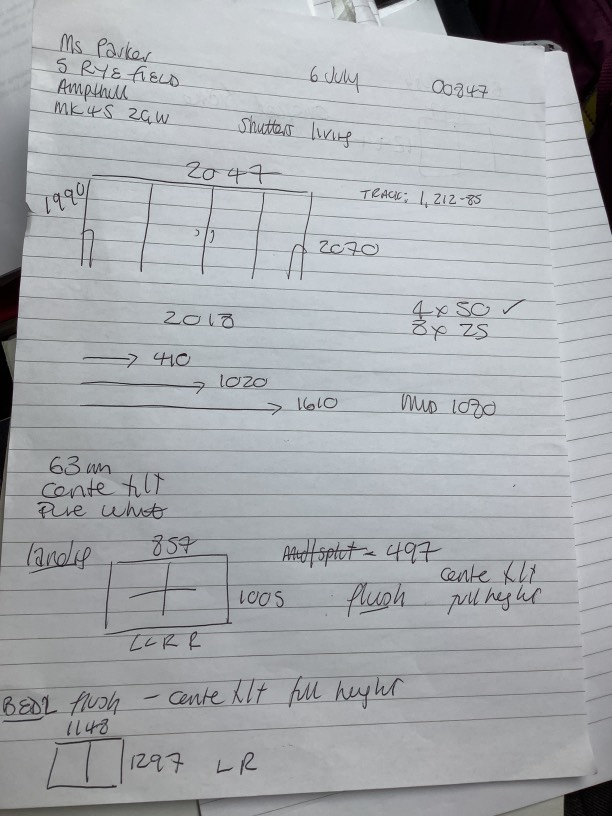 Ms Parker
5 RYE FIELD
Ampthill
MK45 2QW
6 July
00847
Shutters living
2047
1990
TRACK: 1,212-85
2070
2018
4 x 50 ✓
8 x 25
→ 410
→ 1020
→ 1610
MID 1080
63 mm
Cente tilt
Pure White
landing
857
Mid/split = 497
1005
flush
cente tilt
full height
LLRR
BED2 flush - cente tilt full height
1148
1297 LR